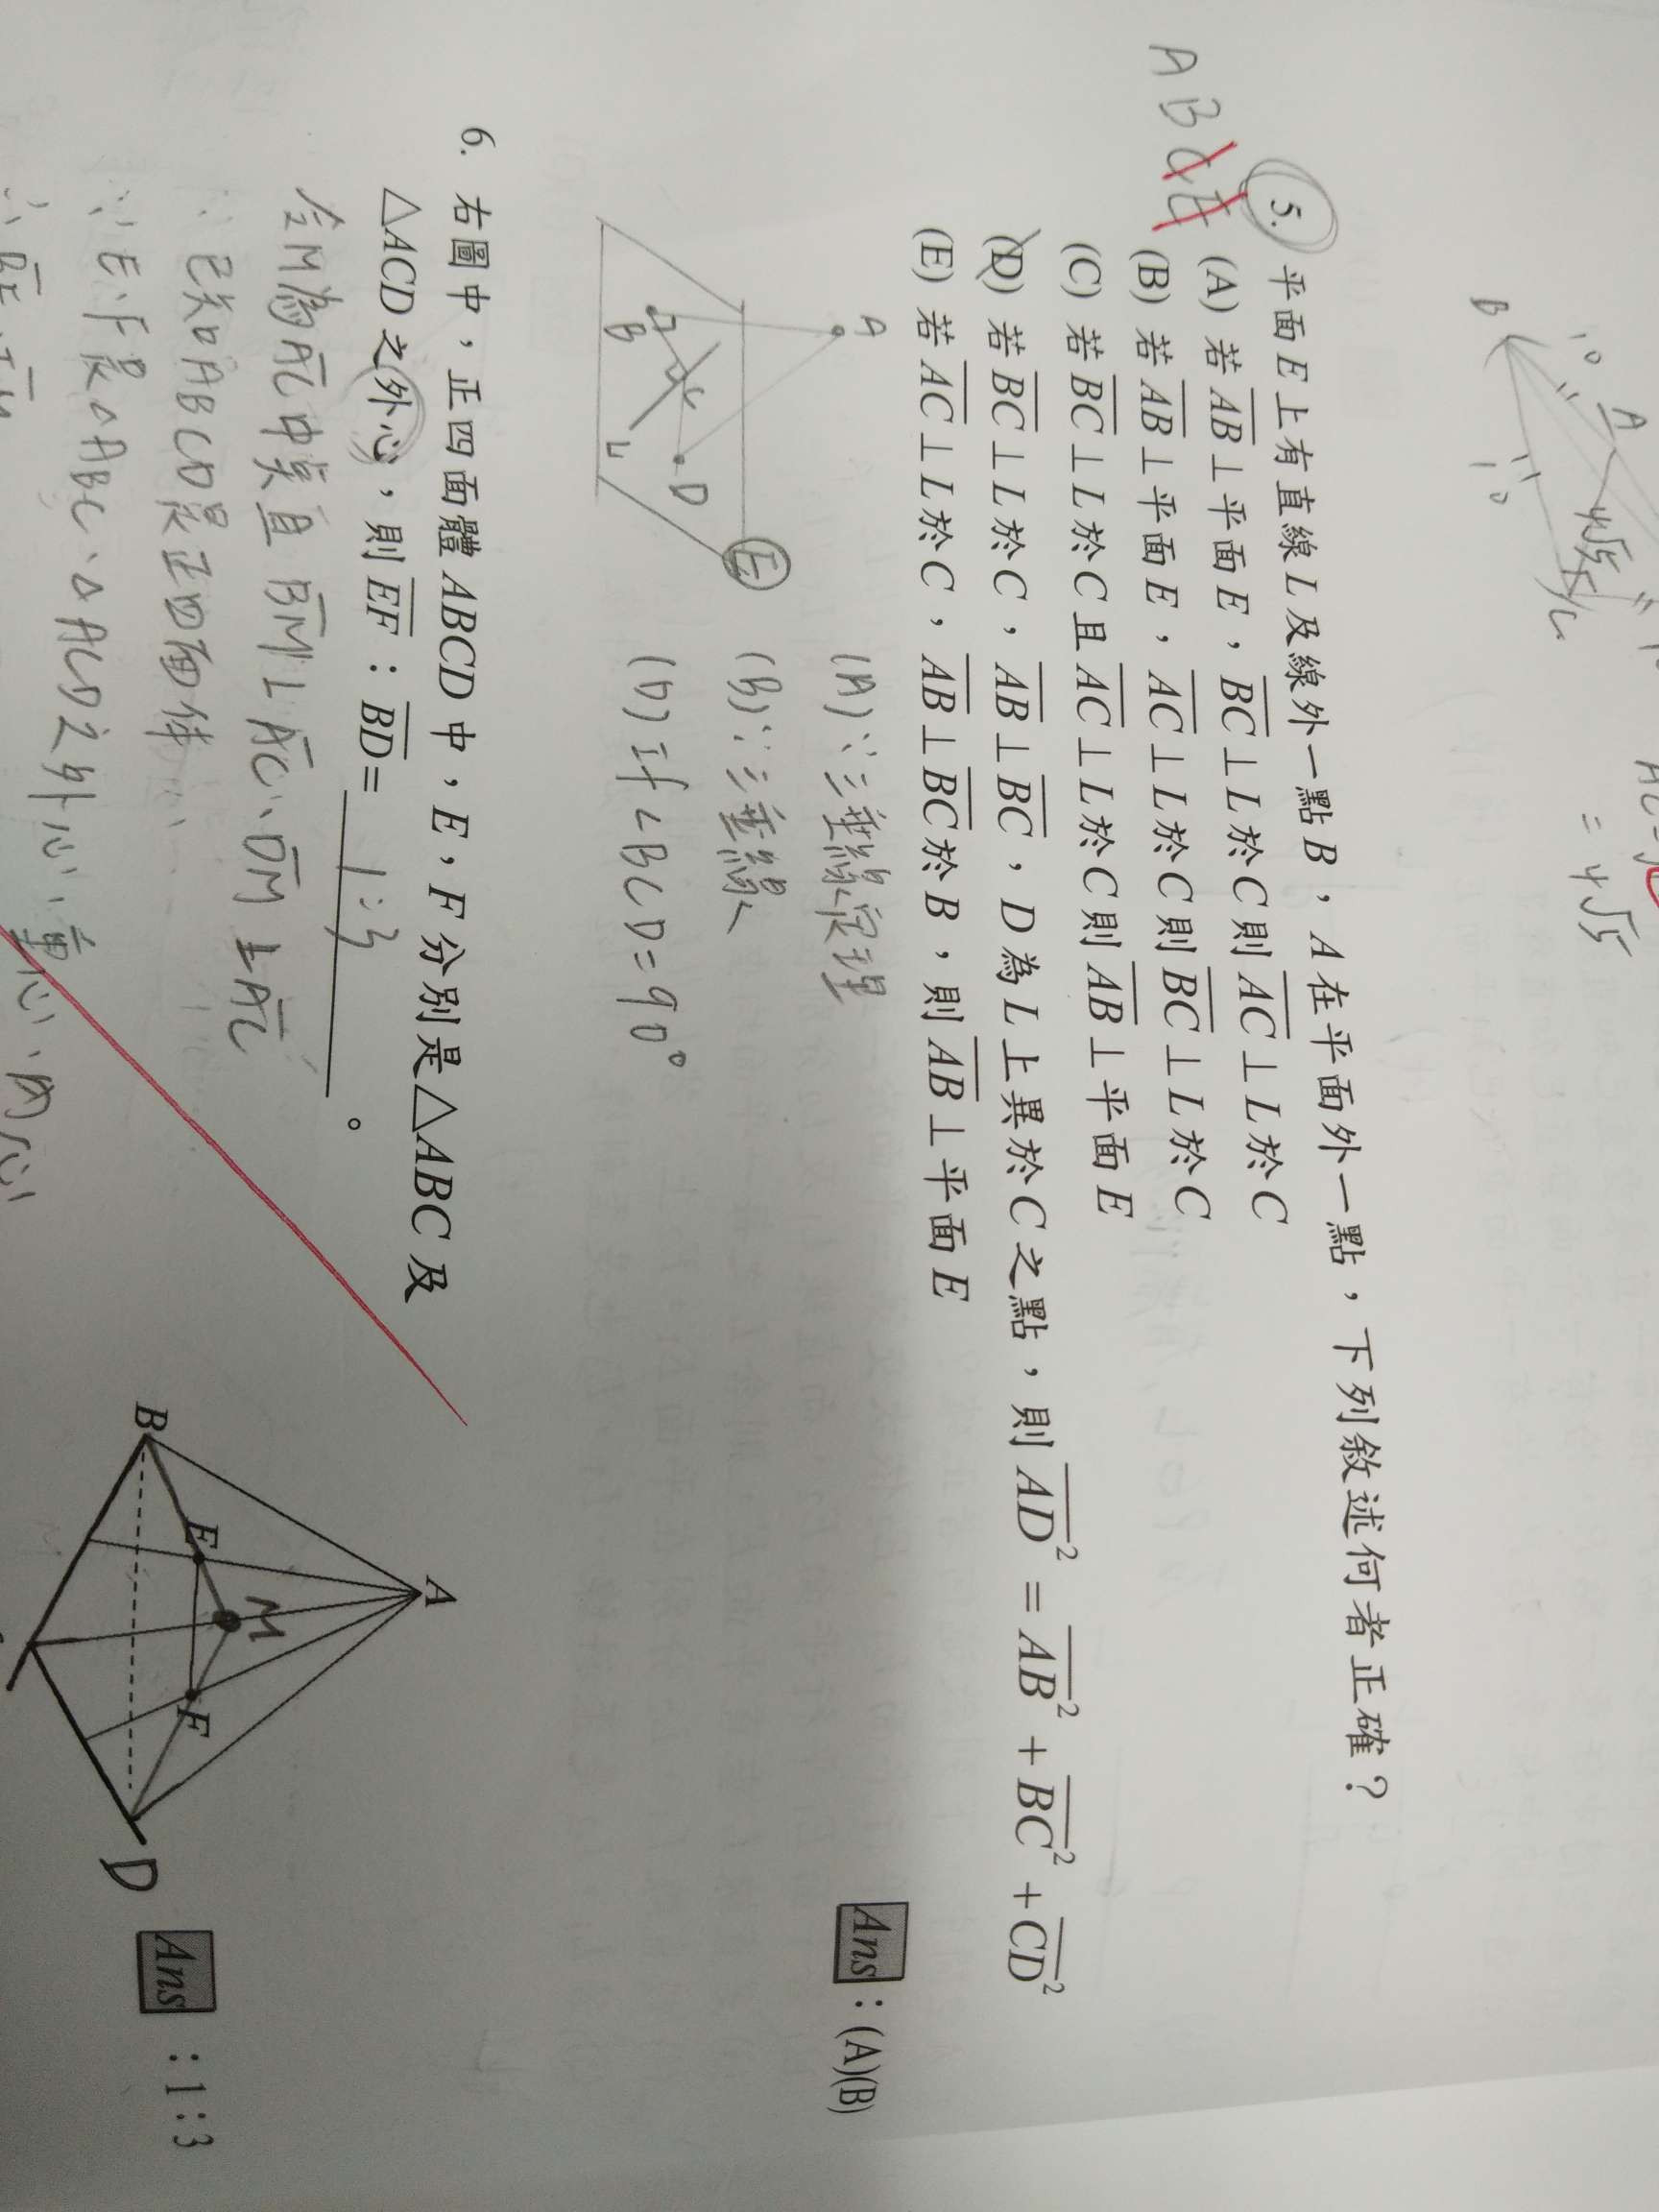 A
B
C
10
10
4√5
= 4√5
ABCE
5. 平面E上有直線L及線外一點B，A在平面外一點，下列敘述何者正確？
(A) 若AB⊥平面E，BC⊥L於C則AC⊥L於C
(B) 若AB⊥平面E，AC⊥L於C則BC⊥L於C
(C) 若BC⊥L於C且AC⊥L於C則AB⊥平面E
(D) 若BC⊥L於C，AB⊥BC，D為L上異於C之點，則AD²=AB²+BC²+CD²
(E) 若AC⊥L於C，AB⊥BC於B，則AB⊥平面E
Ans：(A)(B)
A
B
C
D
L
E
(A)∵三垂線定理
(B)∵三垂線
(D) If ∠BCD=90°
6. 右圖中，正四面體ABCD中，E，F分別是△ABC及
△ACD之外心，則EF：BD= 1:3 。
令M為AC中點且BM⊥AC、DM⊥AC
∵已知ABCD是正四面体
∵E、F是△ABC、△ACD之外心、重心、内心
A
B
E
M
F
D
Ans：1：3